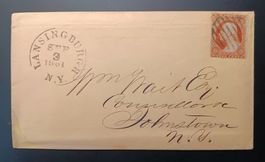 LANSINGBURGH
SEP
3
1861
N.Y.
Wm Wait Esq
Counsellor &c
Johnstown
N.Y.